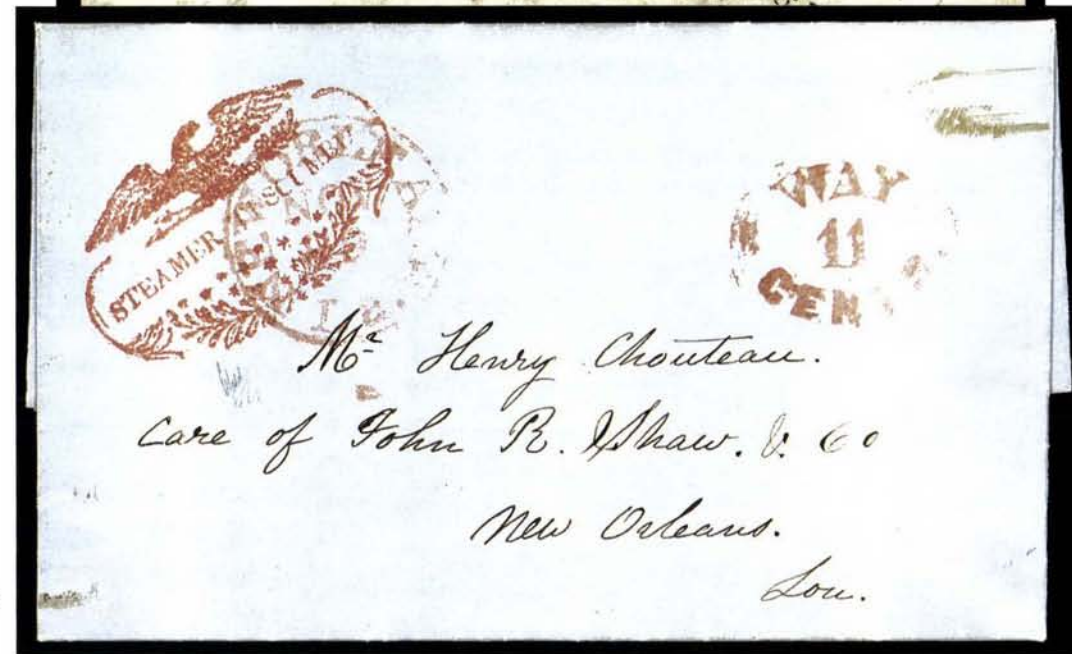 STEAMER TECUMSEH
WAY
11
CENTS
Mr Henry Chouteau.
Care of John R. Shaw. & Co
New Orleans.
Lou.